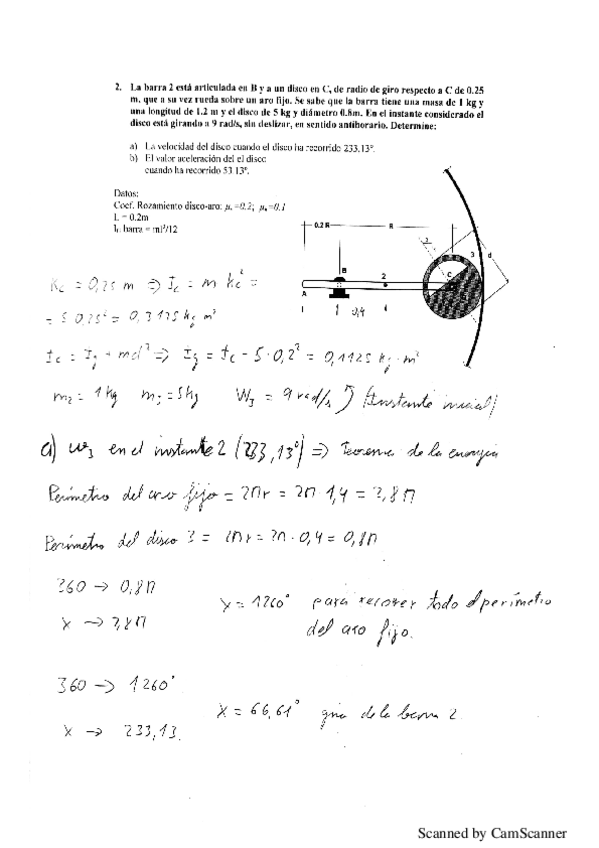 2. La barra 2 está articulada en B y a un disco en C, de radio de giro respecto a C de 0.25
m, que a su vez rueda sobre un aro fijo. Se sabe que la barra tiene una masa de 1 kg y
una longitud de 1.2 m y el disco de 5 kg y diámetro 0.8m. En el instante considerado el
disco está girando a 9 rad/s, sin deslizar, en sentido antihorario. Determine:
a) La velocidad del disco cuando el disco ha recorrido 233.13º.
b) El valor aceleración del el disco
cuando ha recorrido 53.13º.
Datos:
Coef. Rozamiento disco-aro: =0.2; =0.1
L = 0.2m
barra = ml²/12
0.2 R
R
B
2
C
3
d
A
0,4
Kc = 0,25 m => Ic = m kc² =
= 5 0,25² = 0,3125 kg m²
Ic = Ig + md² => Ig = Ic - 5·0,2² = 0,1125 kg·m²
m2 = 1 kg m3 = 5kg W3 = 9 rad/s (Instante inicial)
a) w3 en el instante 2 (233,13°) => Teorema de la energía
Perímetro del aro fijo = 2πr = 2π 1,4 = 2,8π
Perímetro del disco 3 = 2πr = 2π·0,4 = 0,8π
360 → 0,8π
x → 2,8π
x = 1260° para recorrer todo el perímetro
del aro fijo.
360 → 1260°
x → 233,13.
x = 66,61° gira de la barra 2.
Scanned by CamScanner